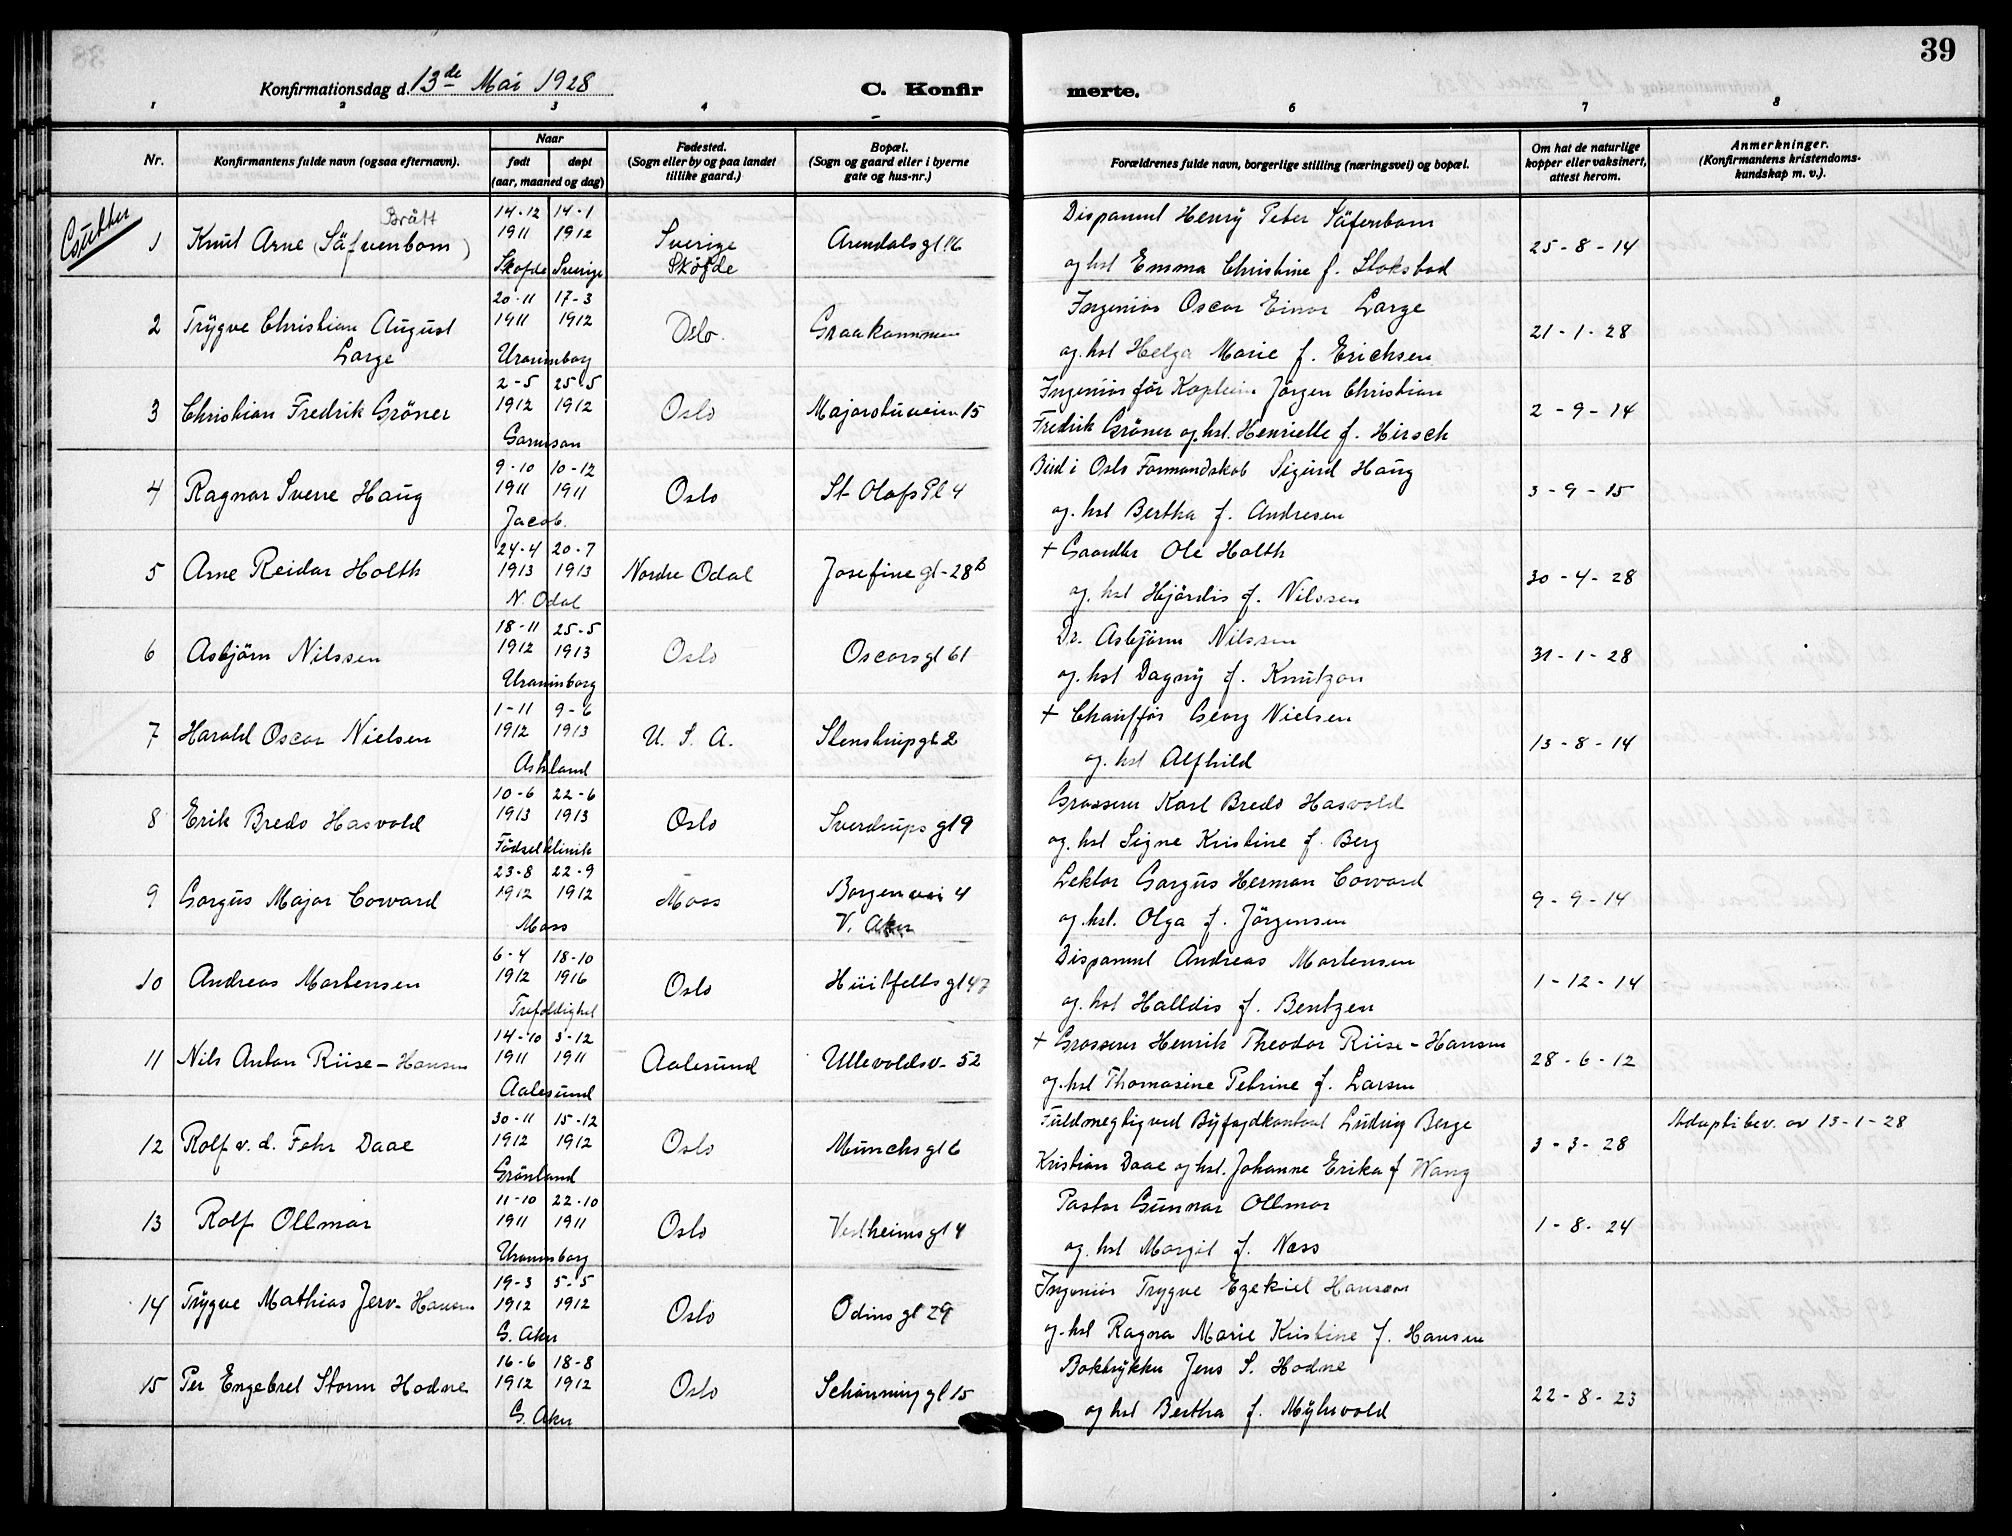 39
Konfirmationsdag d. 13de Mai 1928
C. Konfirmerte.
1 2 3 4 5 6 7 8
Nr.
Konfirmantens fulde navn (ogsaa efternavn).
Naar
født
døpt
(aar, maaned og dag)
Fødested.
(Sogn eller by og paa landet
tillike gaard.)
Bopæl.
(Sogn og gaard eller i byerne
gate og hus-nr.)
Forældrenes fulde navn, borgerlige stilling (næringsvei) og bopæl.
Om hat de naturlige
kopper eller vaksinert,
attest herom.
Anmerkninger.
(Konfirmantens kristendoms-
kundskap m. v.).
Gutter
Brått
1 Knut Arne (Säfvenbom) 14-12 1911 14-1 1912 Sverige Arendalsgt 16 Dispannt Henry Peter Säfenbom 25-8-14
Skofde Sverige Sköfde og hst Emma Christine f. Stoksbad
2 Trygve Christian August 20-11 1911 17-3 1912 Oslo. Graakammen Ingeniör Oscar Einar Large 21-1-28
Large Uranienborg og hst Helga Marie f. Erichsen
3 Christian Fredrik Gröner 2-5 1912 25-5 1912 Oslo Majorstuveien 15 Ingeniör för Kaptein Jörgen Christian 2-9-14
Garnison Fredrik Gröner og hst. Henriette f. Hirsch
4 Ragnar Sverre Haug 9-10 1911 10-12 1911 Oslo St Olafs Pl 4 Bud i Oslo Formandskab Sigurd Haug 3-9-15
Jacob. og. hst Bertha f. Andresen
5 Arne Reidar Holth 24-4 1913 20-7 1913 Nordre Odal Josefinegt-28B + Gaardbr Ole Holth 30-4-28
N. Odal og. hst Hjördis f. Nilssen
6 Asbjörn Nilssen 18-11 1912 25-5 1913 Oslo Oscarsgt 61 Dr. Asbjörn Nilssen 31-1-28
Uranienborg og. hst Dagny f. Knutzon
7 Harald Oscar Nielsen 1-11 1912 9-6 1913 U. S. A. Stenstrupgt 2 + Chaufför Georg Nielsen 13-8-14
Ashland og. hst Alfhild
8 Erik Bredo Hasvold 10-6 1913 22-6 1913 Oslo Sverdrups gt 9 Grosserer Karl Bredo Hasvold
Födselklinik og. hst Signe Kristine f. Berg
9 Gorgus Major Coward 23-8 1912 22-9 1912 Moss Borgenvei 4 Lektor Gorgus Herman Coward 9-9-14
Moss V. Aker og hst. Olga f. Jörgensen
10 Andreas Mortensen 6-4 1912 18-10 1916 Oslo Huitfeldtsgt 47 Dispannt Andreas Mortensen 1-12-14
Trefoldighet og. hst Halldis f. Bentzen
11 Nils Anton Riise-Hansen 14-10 1911 3-12 1911 Aalesund Ullevoldsv-52 + Grosserer Henrik Theodor Riise-Hansen 28-6-12
Aalesund og. hst Thomasine Petrine f. Larsen
12 Rolf v. d. Fehr Daae 30-11 1912 15-12 1912 Oslo Munchsgt 6 Fuldmegtig ved Byfogdkontoret Ludvig Berge 3-3-28 Adoptibev. av 13-1-28
Grönland Kristian Daae og hst. Johanne Erika f Wang
13 Rolf Ollmar 11-10 1911 22-10 1911 Oslo Vestheimsgt 4 Pastor Gunnar Ollmar 1-8-24
Uranienborg og. hst Margit f. Næss
14 Trygve Mathias Jerv-Hansen 19-3 1912 5-5 1912 Oslo Odins gt 29 Ingeniör Trygve Ezekiel Hansen
G. Aker og. hst Ragna Marie Kristine f. Hansen
15 Per Engebret Storm Hodne 16-6 1912 18-8 1912 Oslo Schönninggt 15 Boktrykker Jens S. Hodne 22-8-23
G. Aker og hst Bertha f. Myhrvold